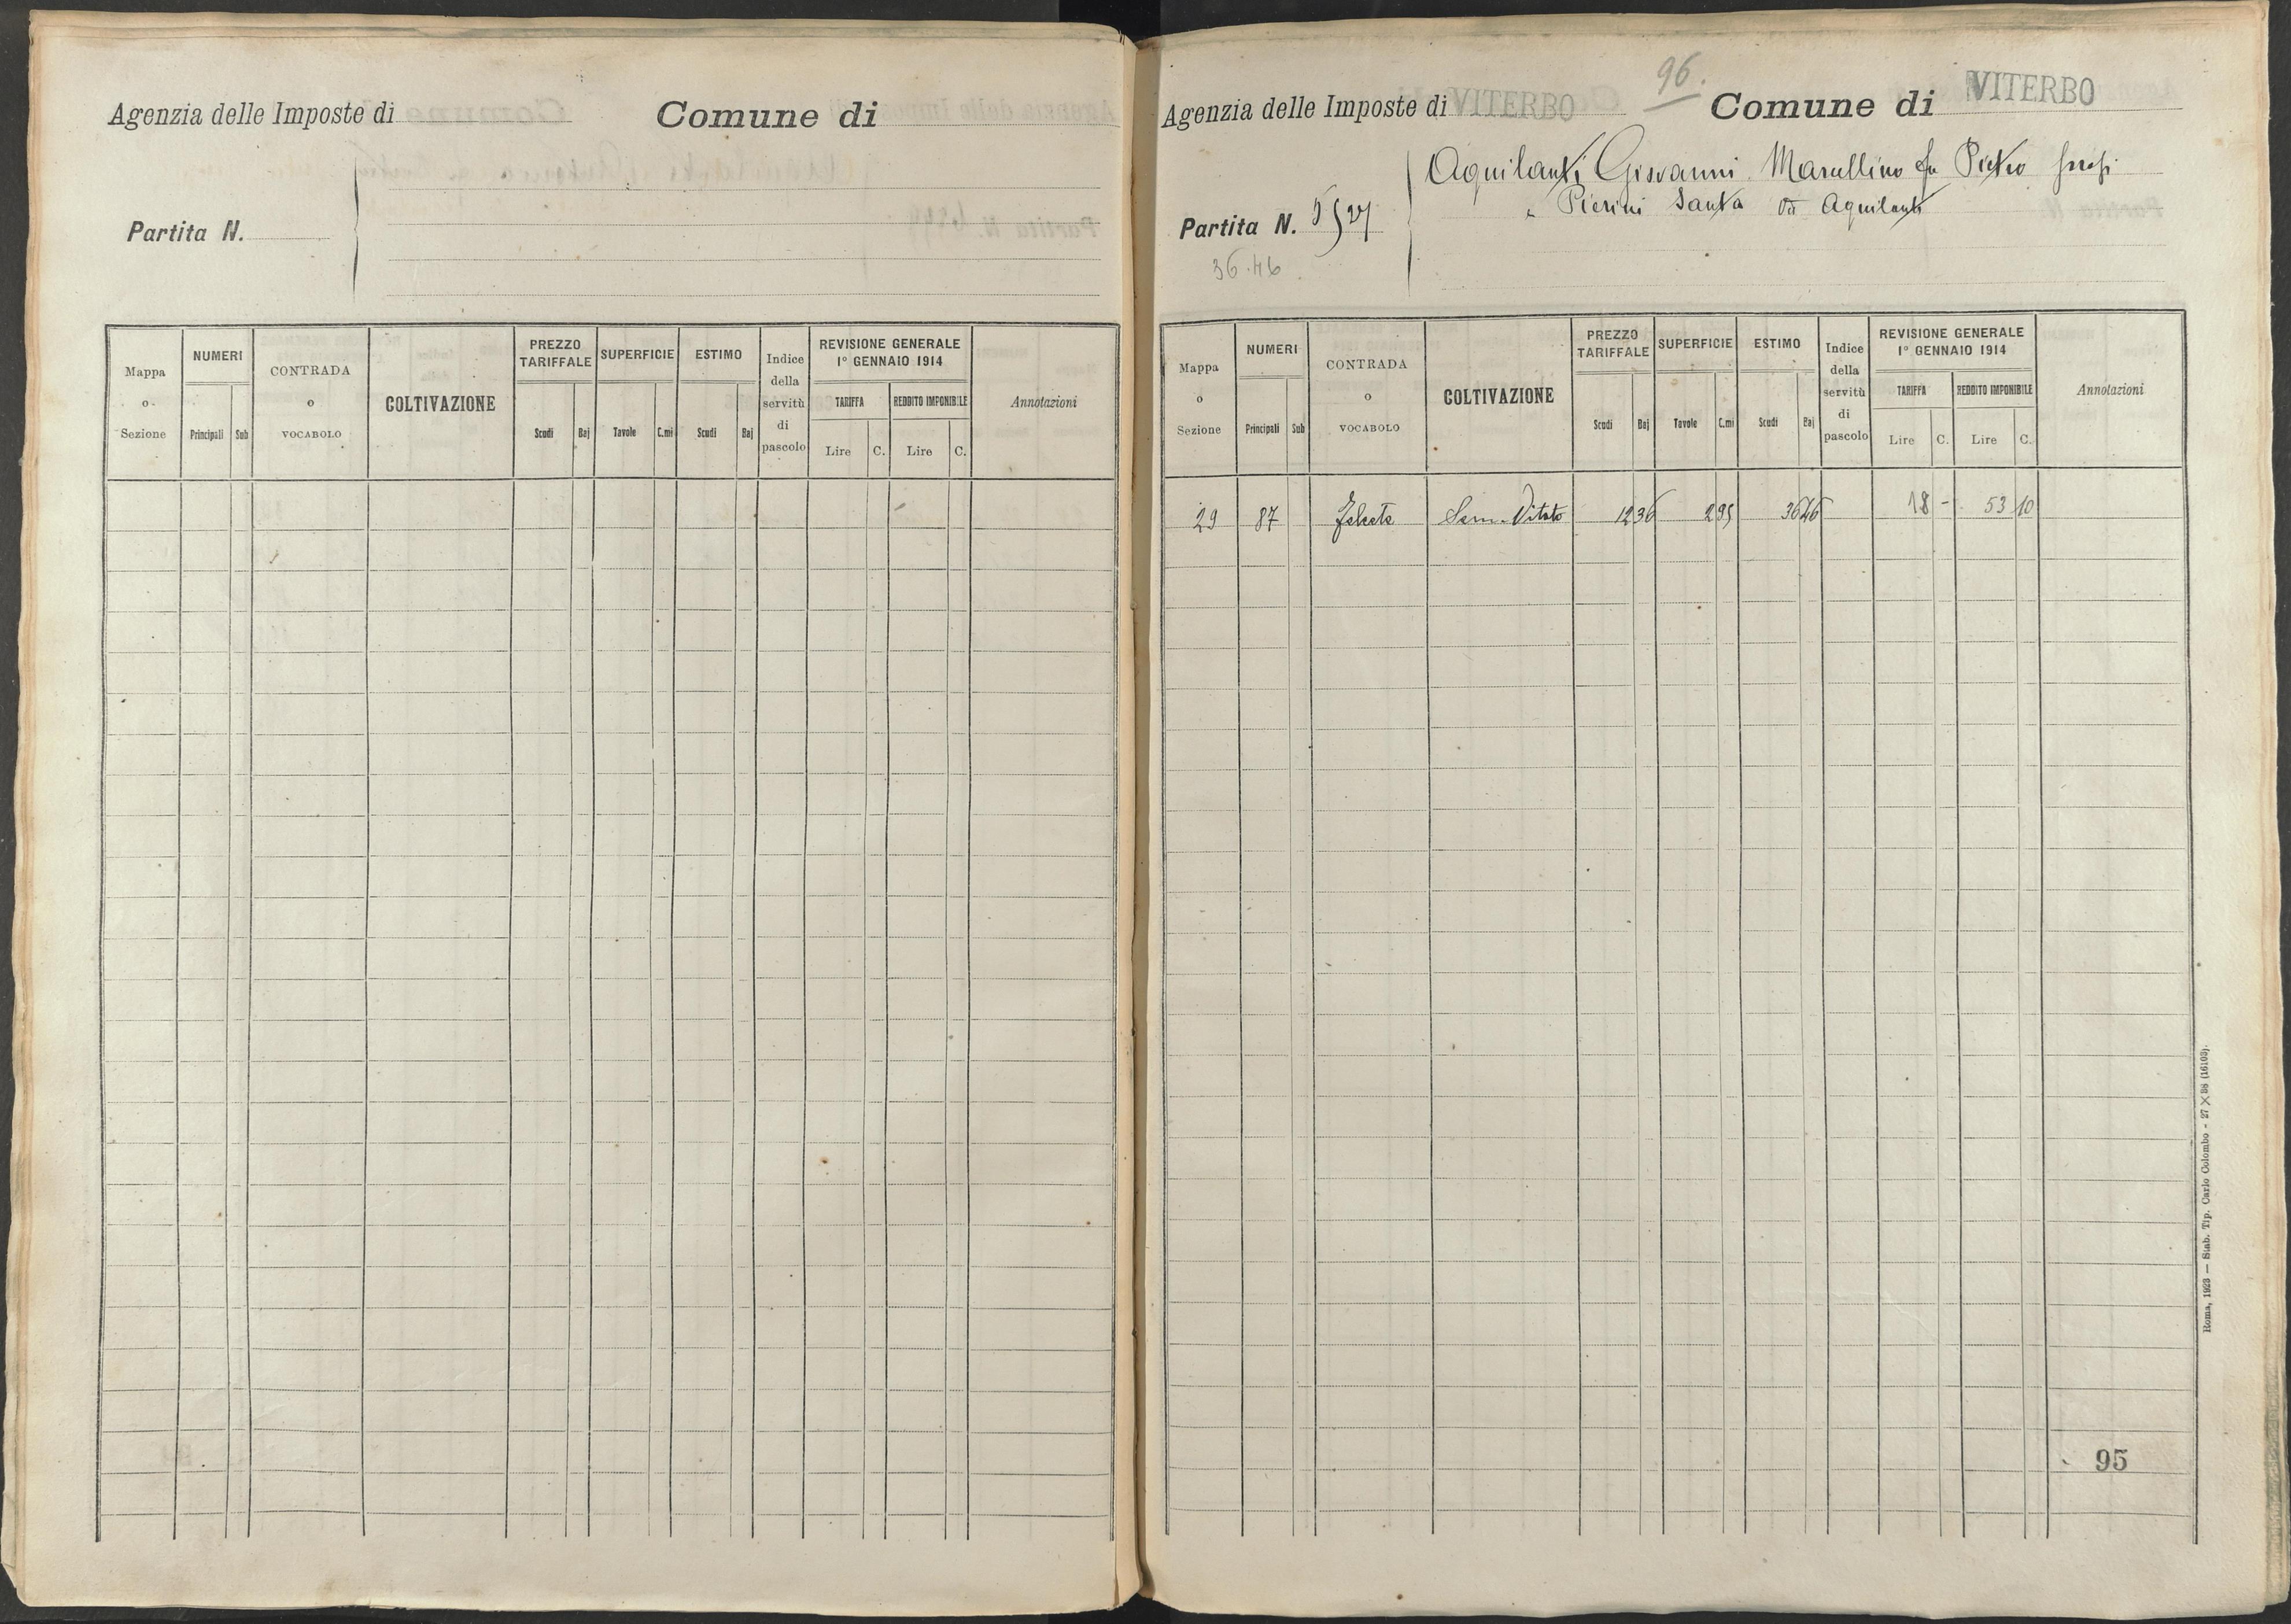 Agenzia delle Imposte di
Comune di
Partita N.
Mappa o Sezione
NUMERI
Principali
Sub
CONTRADA o VOCABOLO
COLTIVAZIONE
PREZZO TARIFFALE
Scudi
Baj
SUPERFICIE
Tavole
C.mi
ESTIMO
Scudi
Baj
Indice della servitù di pascolo
REVISIONE GENERALE
1° GENNAIO 1914
TARIFFA
Lire
C.
REDDITO IMPONIBILE
Lire
C.
Annotazioni
96.
Agenzia delle Imposte di VITERBO
Comune di VITERBO
Aquilanti Giovanni Marcellino fu Pietro
" Pierini Santa in Aquilanti
Partita N.
36.46
Mappa o Sezione
NUMERI
Principali
Sub
CONTRADA o VOCABOLO
COLTIVAZIONE
PREZZO TARIFFALE
Scudi
Baj
SUPERFICIE
Tavole
C.mi
ESTIMO
Scudi
Baj
Indice della servitù di pascolo
REVISIONE GENERALE
1° GENNAIO 1914
TARIFFA
Lire
C.
REDDITO IMPONIBILE
Lire
C.
Annotazioni
29 87 Sem. Vitato 12 36 2 95 36 46 18 - 53 10
Roma, 1923 — Stab. Tip. Carlo Colombo - 27 X 38 (16103).
95